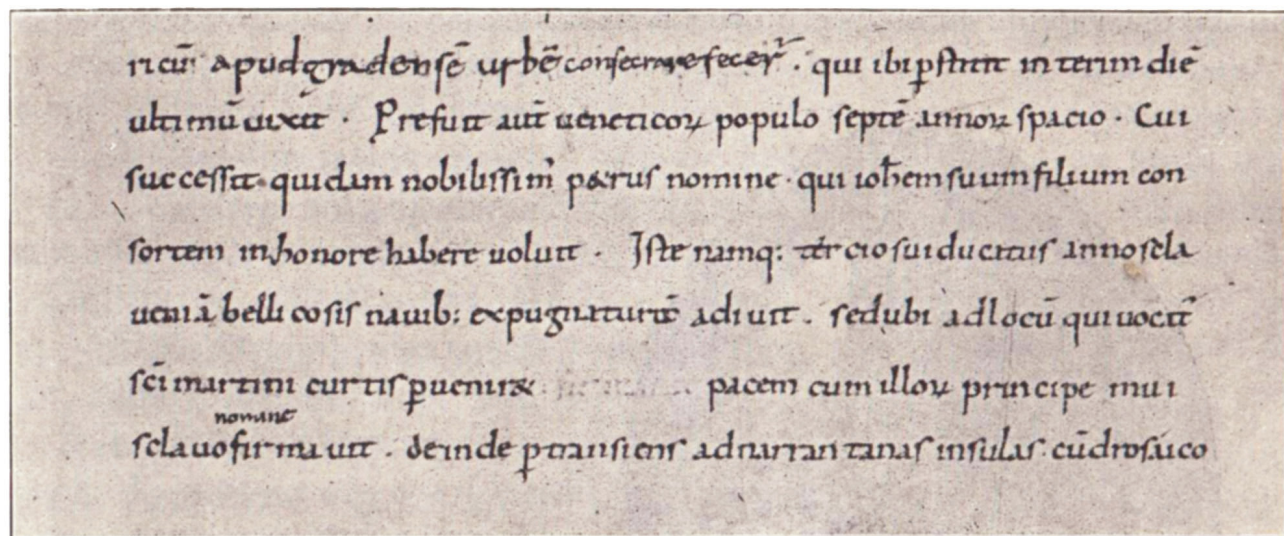 ricū apud gradensē urbē consecrare fecer̄ . qui ibi ꝑstitit interim diē
ultimū uixit . Prefuit aut̄ ueneticoꝝ populo septē annoꝝ spacio . Cui
successit quidam nobilissim᾽ petrus nomine . qui ioh̄em suum filium con
sortem in honore habere uoluit . Iste namq: tercio sui ducatus anno scla
ueniā bellicosis nauib: expugnaturū adiuit . sed ubi ad locū qui uocat᾽
sc̄i martini curtis ꝑueniret pacem cum illoꝝ principe mui
nomine
sclauo firmauit . deinde ꝑtransiens ad narrantanas insulas cū drosaico